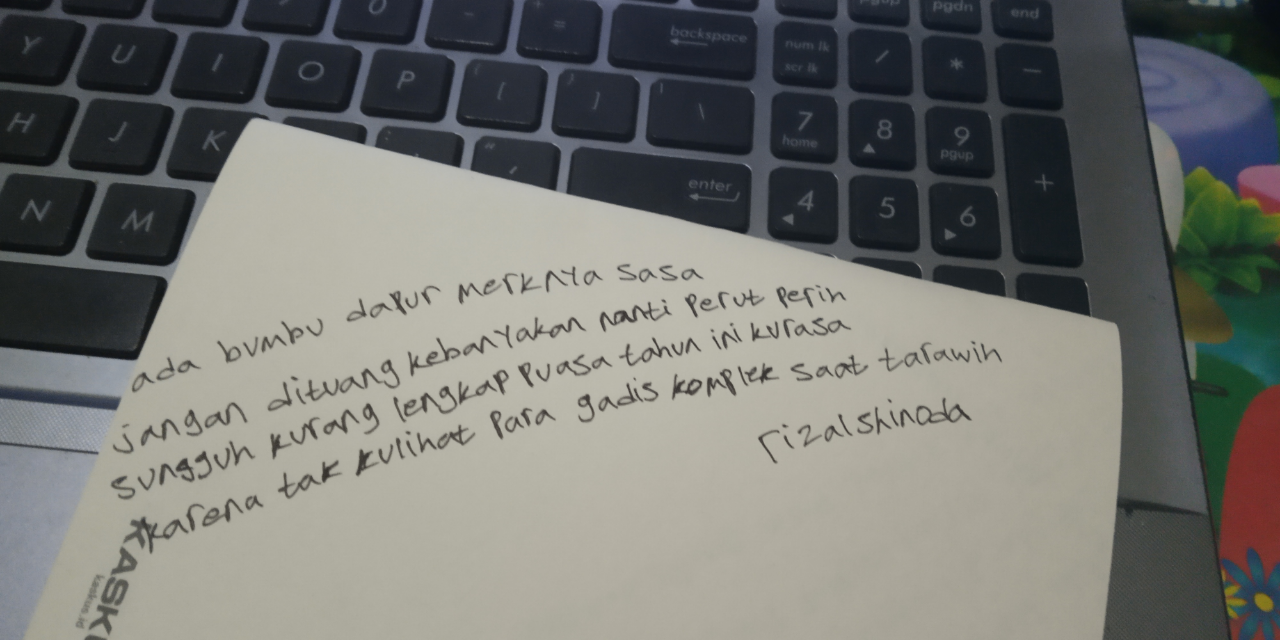 0 - + =
backspace
num lk
scr lk
/ * -
pgup pgdn end
Y U I O P { [ } ] | \
7 home 8 9 pgup +
H J K " ,
enter
4 5 6
N M
ada bumbu dapur merknya sasa
jangan dituang kebanyakan nanti perut perih
sungguh kurang lengkap puasa tahun ini kurasa
karena tak kulihat para gadis komplek saat tarawih
rizalshinoda
KASK
kaskus.id